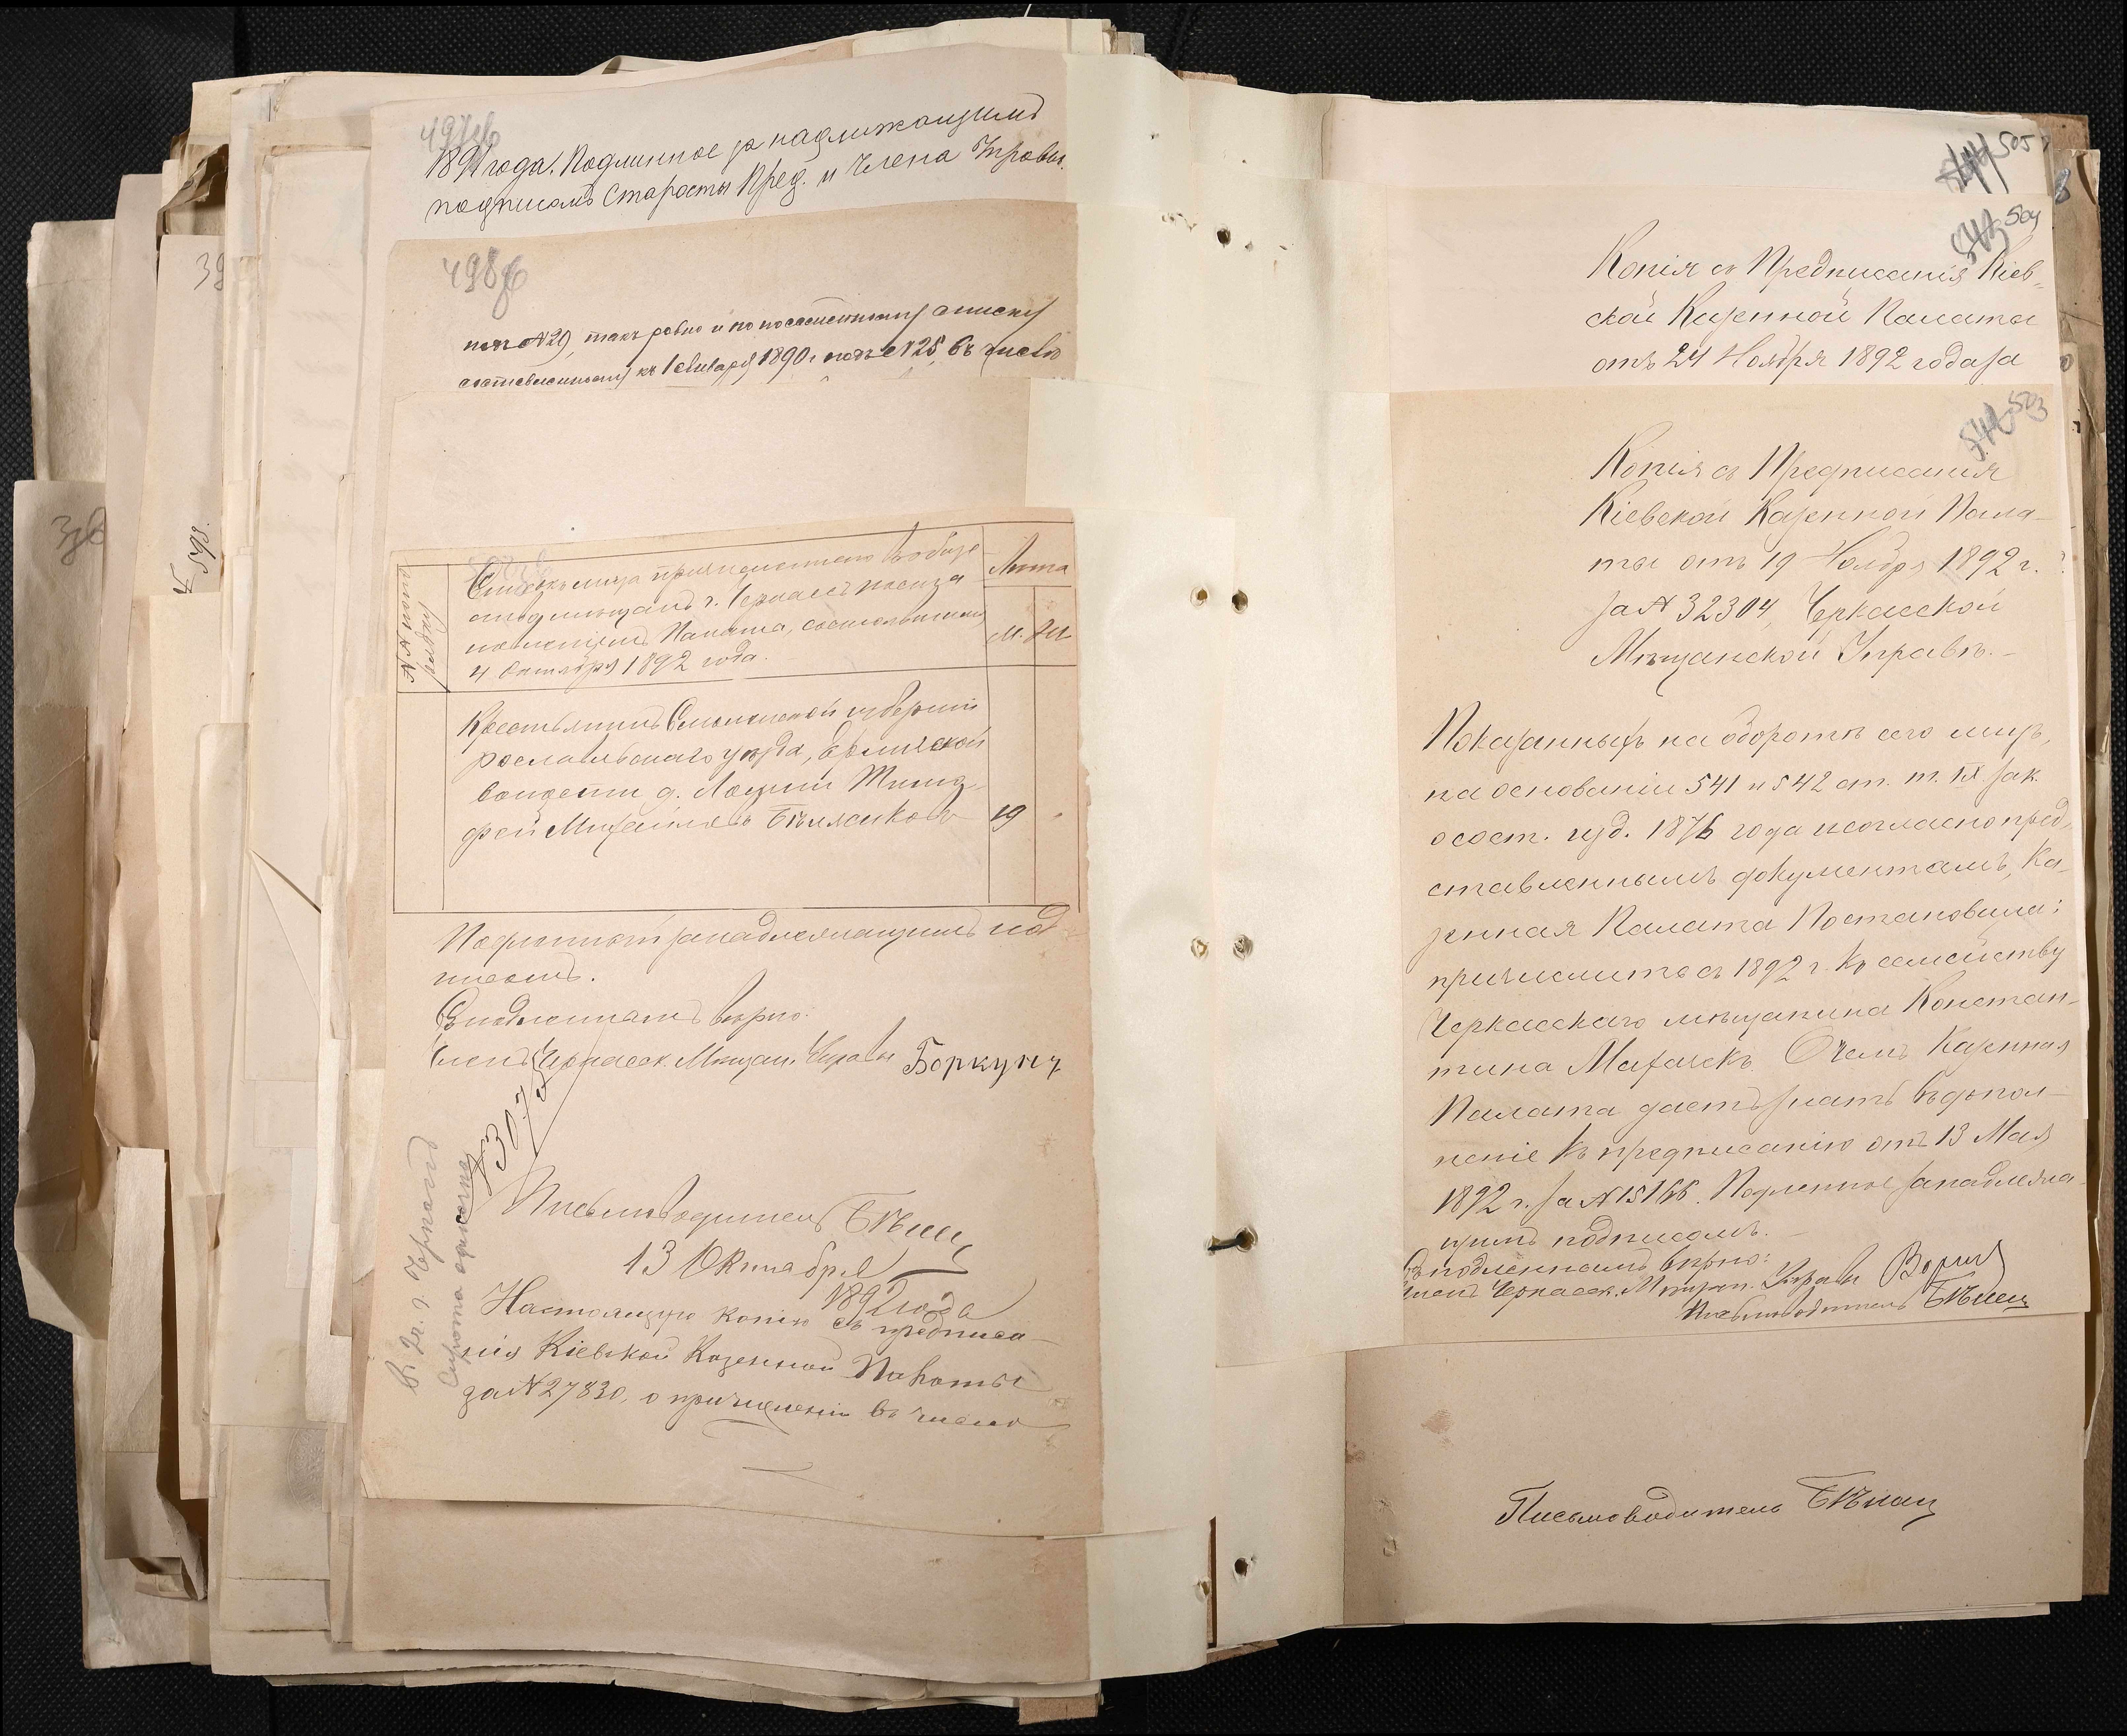 497об
1891 года. Подлинное за надлежащимъ
подписомъ Старосты Пред. и Члена Управы.
498об
подъ №29, такъ ровно и по посемейному списку
составленному къ 1 Января 1890 г. подъ №25, въ число
№№ по по-
рядку
Списокъ лица причисленнаго въ обще-
ство мѣщанъ г. Черкассъ Казен-
Палата, состоявшимся
4 Октября 1892 года.
Лѣта
М. Ж.
Крестьянинъ Смоленской губерніи
рославльскаго уѣзда,
волости д. Тимо-
фей Михайловъ Бѣляковъ 19
Подлинной за надлежащимъ под-
писомъ.
Съ подлиннымъ вѣрно:
Членъ Черкасск. Мѣщан. Управы Боркунъ
№3075
Письмоводитель Бѣлец
13 Октября
1892 года
Настоящую копію съ предписа-
нія Кіевской Казенной Палаты
за №27830, о причисленіи въ число
39
598.
505
504
Копія съ Предписанія Кіев-
ской Казенной Палаты
отъ 24 Ноября 1892 года за
503
Копія съ Предписанія
Кіевской Казенной Пала-
ты отъ 19 Ноября 1892 г.
за № 32304, Черкасской
Мѣщанской Управѣ.
Показанныхъ на оборотѣ сего лицъ,
на основаніи 541 и 542 ст. т. IX зак.
о сост. изд. 1876 года и согласно пред-
ставленнымъ документамъ, Ка-
зенная Палата Постановила:
причислить съ 1892 г. къ семейству
Черкасскаго мѣщанина Констан-
тина Мазачекъ. О чемъ Казенная
Палата даетъ знать въ допол-
неніе къ предписанію отъ 13 Мая
1892 г. за №15166. Подленное за надлежа-
щимъ подписомъ.
Съ подленнымъ вѣрно:
Членъ Черкасск. Мѣщан. Управы
Письмоводитель Бѣлец
Письмоводитель Бѣлец